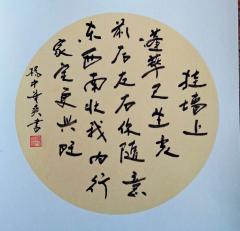 挂墙上
蓬荜又生
前后左右你随意
东西南北我内行
家宅更兴旺
书